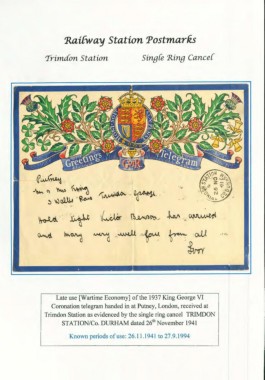 Railway Station Postmarks
Trimdon Station Single Ring Cancel
Greetings Telegram
Putney
Mr & Mrs
3 Wallis Row Trimdon Grange
Hold tight Thomas has arrived
and Mary very well love from all
Ivor
Late use [Wartime Economy] of the 1937 King George VI
Coronation telegram handed in at Putney, London, received at
Trimdon Station as evidenced by the single ring cancel TRIMDON
STATION/Co. DURHAM dated 26th November 1941
Known periods of use: 26.11.1941 to 27.9.1994